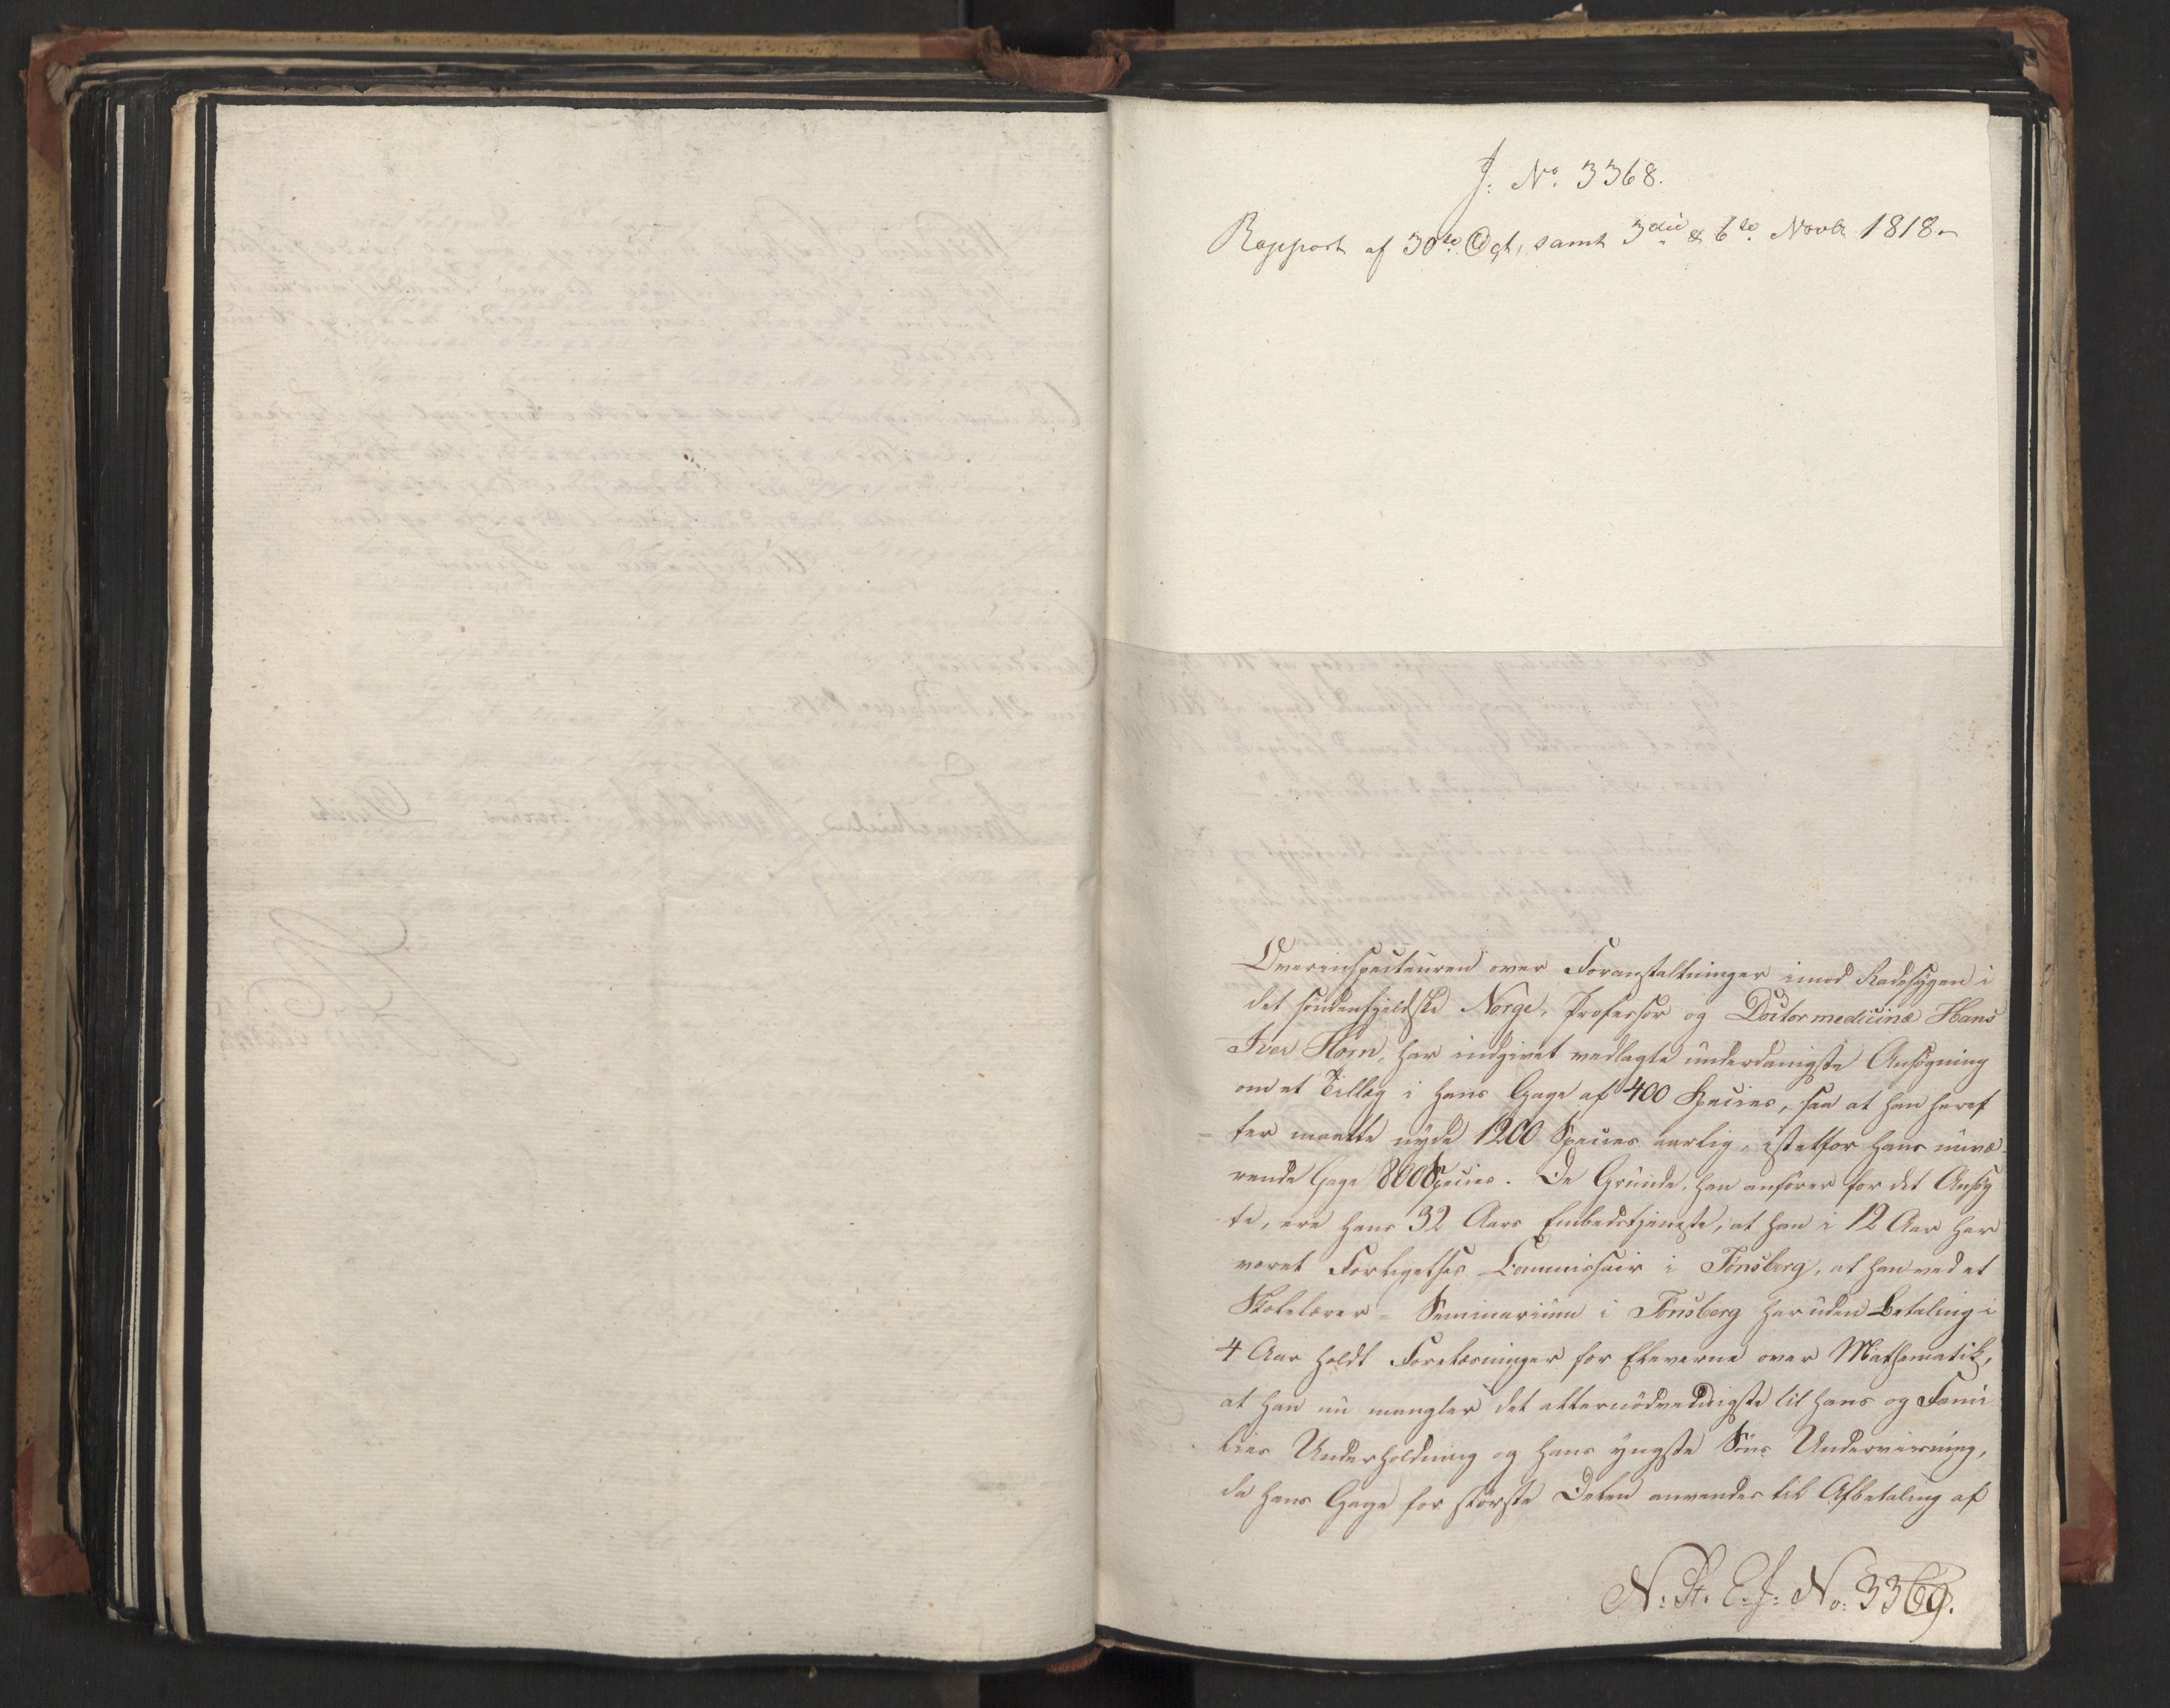 J: No. 3368.
Rapport af 30te Oct, samt 3die & 6te Novbr 1818.
Overinspecteuren over Foranstaltninger imod Radesygen i
det søndenfjeldske Norge, Professor og Doctor medicinæ Hans
Iver Horn, har indgivet vedlagte underdanigste Ansøgning
om et Tillæg i hans Gage af 400 Species, saa at han heref
ter maatte nyde 1200 Species aarlig, istætfor hans nuvæ-
rende Gage 800 Species. De Grunde, han anfører for det Ansøg
te, ere hans 32 Aars Embedstjeneste, at han i 12 Aar har
været Forligelses Commissair i Tønsberg, at han ved et
Skolelærer = Seminarium i Tønsberg har uden Betaling i
4 Aar holdt Forelæsninger for Eleverne over Mathematik,
at han nu mangler det allernödvendigste til hans og Fami
lies Underholdning og hans yngste Søns Underviisning,
da hans Gage for største Delen anvendes til Afbetaling af
N: St. E. J: No: 3369.